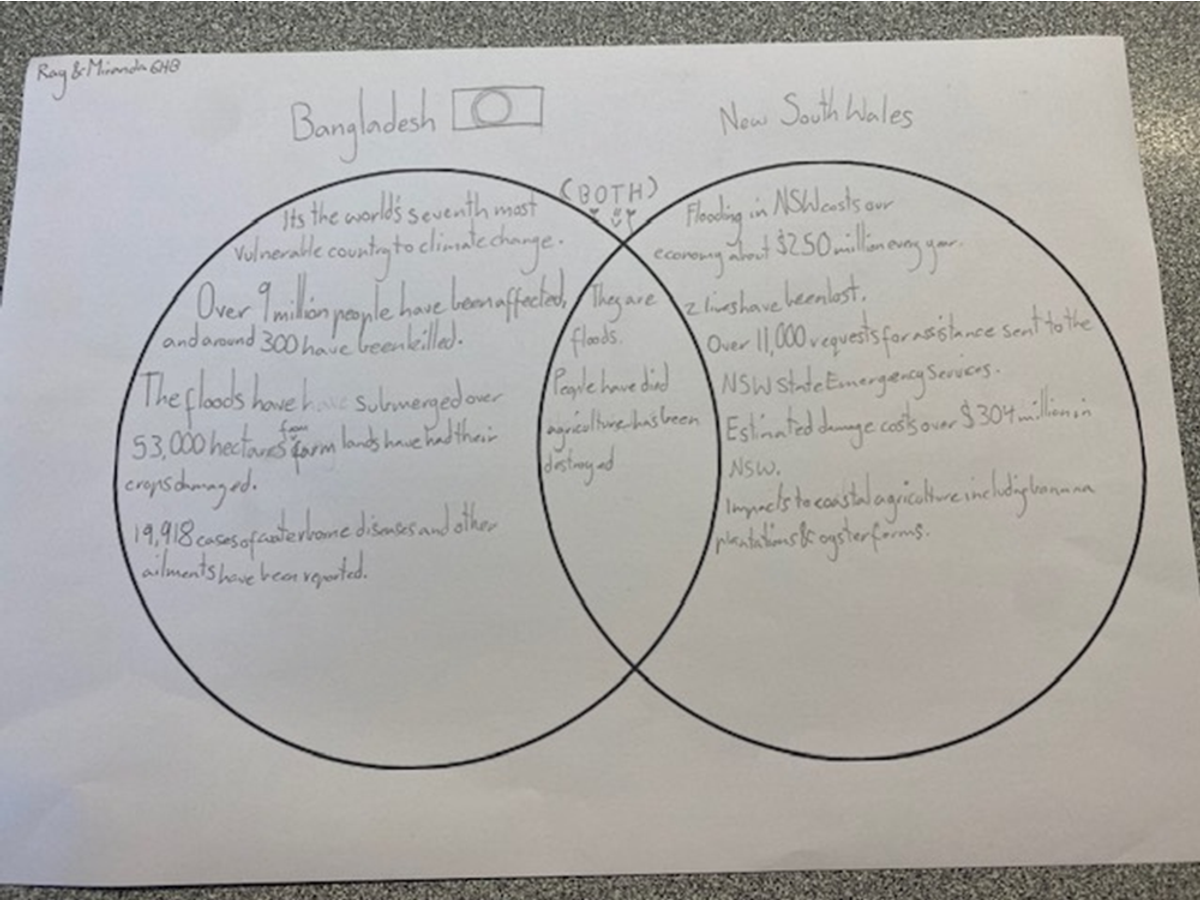 Ray & Miranda 6HB
Bangladesh
New South Wales
(BOTH)
Its the world's seventh most
vulnerable country to climate change.
Over 9 million people have been affected,
and around 300 have been killed.
The floods have have submerged over
53,000 hectares from farm lands have had their
crops damaged.
19,918 cases of waterborne diseases and other
ailments have been reported.
They are
floods.
People have died
agriculture has been
destroyed
Flooding in NSW costs our
economy about $250 million every year.
2 lives have been lost.
Over 11,000 requests for assistance sent to the
NSW State Emergency Services.
Estimated damage costs over $304 million in
NSW.
Impacts to coastal agriculture including banana
plantations & oyster farms.